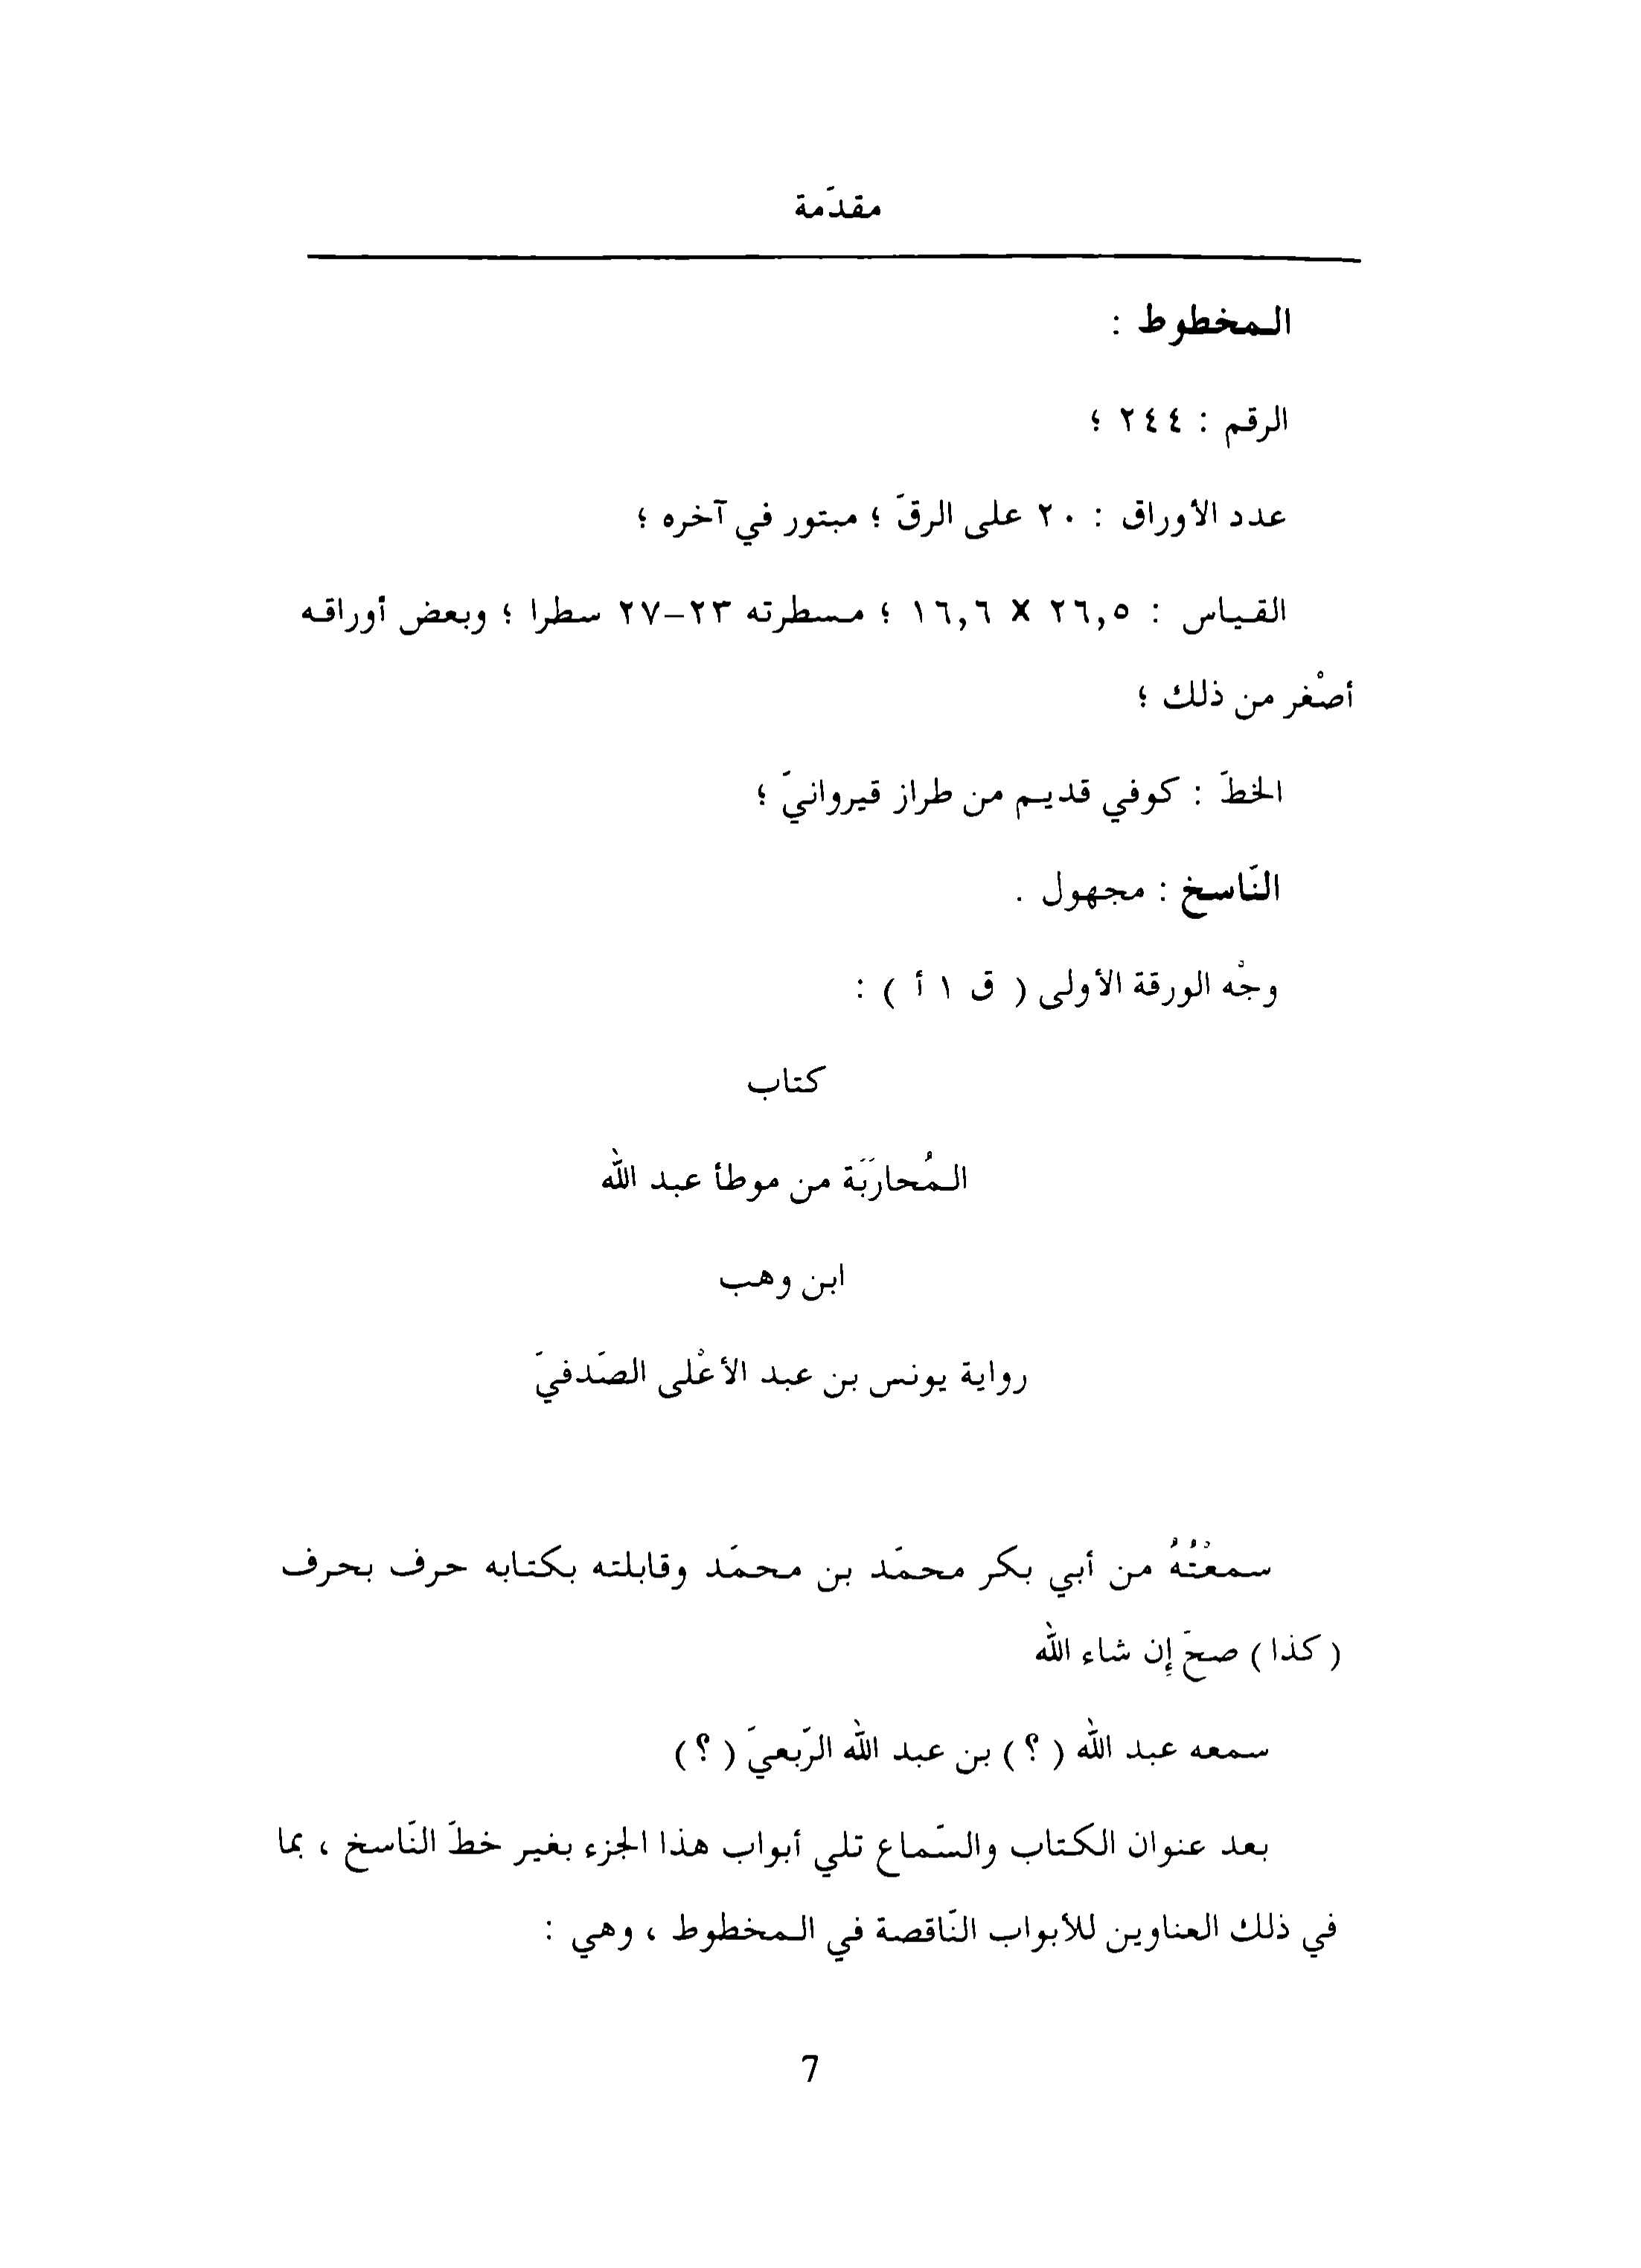 مقدّمة
الـمخطوط :
الرقم : ٢٤٤ ؛
عدد الأوراق : ٢٠ على الرقّ ؛ مبتور في آخره ؛
القياس : ٢٦,٥ X ١٦,٦ ؛ مسطرته ٢٣-٢٧ سطرا ؛ وبعض أوراقه
أصْغر من ذلك ؛
الخطّ : كوفي قديم من طراز قيروانيّ ؛
النّاسخ : مجهول .
وجْه الورقة الأولى ( ق ١ أ ) :
كتاب
الـمُحارَبَة من موطأ عبد الله
ابن وهب
رواية يونس بن عبد الأعْلى الصّدفيّ
سمعْتُهُ من أبي بكر محمّد بن محمّد وقابلته بكتابه حرف بحرف
( كذا ) صحّ إن شاء الله
سمعه عبد الله ( ؟ ) بن عبد الله الرّبعيّ ( ؟ )
بعد عنوان الكتاب والسّماع تلي أبواب هذا الجزء بغير خطّ النّاسخ ، بما
في ذلك العناوين للأبواب النّاقصة في الـمخطوط ، وهي :
7